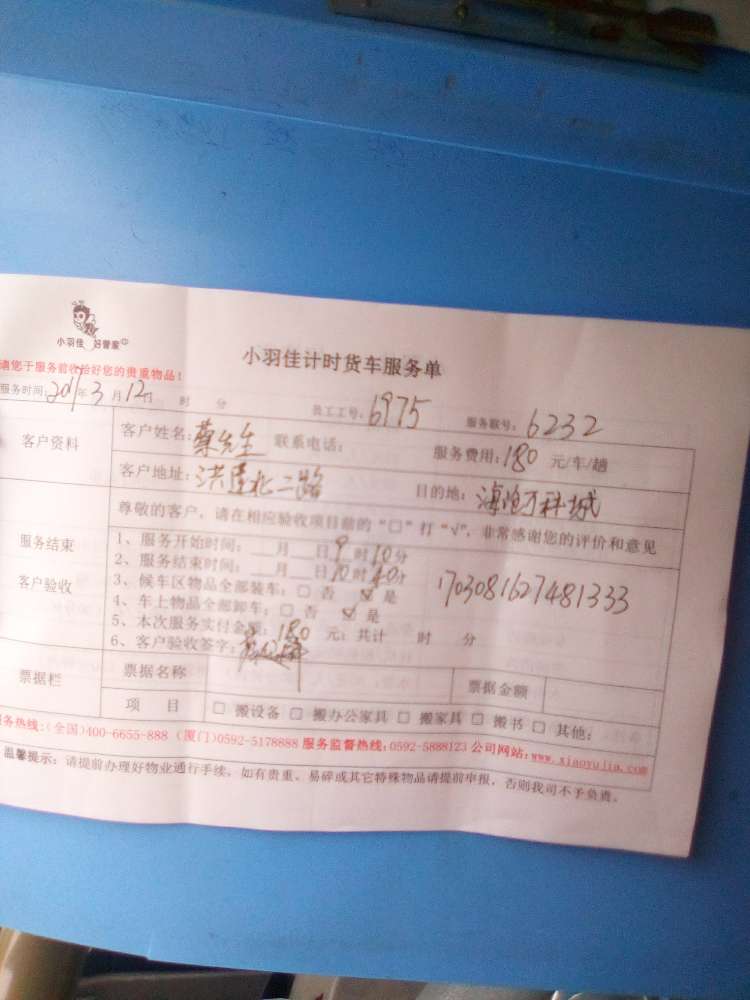 小羽佳 好管家
小羽佳计时货车服务单
请您于服务前收拾好您的贵重物品!
服务时间: 2017年3月12日 时 分 员工工号: 6975 服务联号: 6232
客户资料 客户姓名: 蔡先生 联系电话: 服务费用: 180 元/车/趟
客户地址: 洪莲北二路 目的地: 海沧万科城
尊敬的客户,请在相应验收项目前的“□”打“√”,非常感谢您的评价和意见
服务结束 客户验收
1、服务开始时间: 月 日 9时10分
2、服务结束时间: 月 日 10时40分
3、候车区物品全部装车: □ 否 ☑ 是
4、车上物品全部卸车: □ 否 ☑ 是
1703081627481333
5、本次服务实付金额: 180 元; 共计 时 分
6、客户验收签字:
票据栏 票据名称 票据金额
项 目 □ 搬设备 □ 搬办公家具 □ 搬家具 □ 搬书 □ 其他:
服务热线:(全国)400-6655-888 (厦门)0592-5178888 服务监督热线:0592-5888123 公司网站:www.xiaoyujia.com
温馨提示:请提前办理好物业通行手续,如有贵重、易碎或其它特殊物品请提前申报,否则我司不予负责。